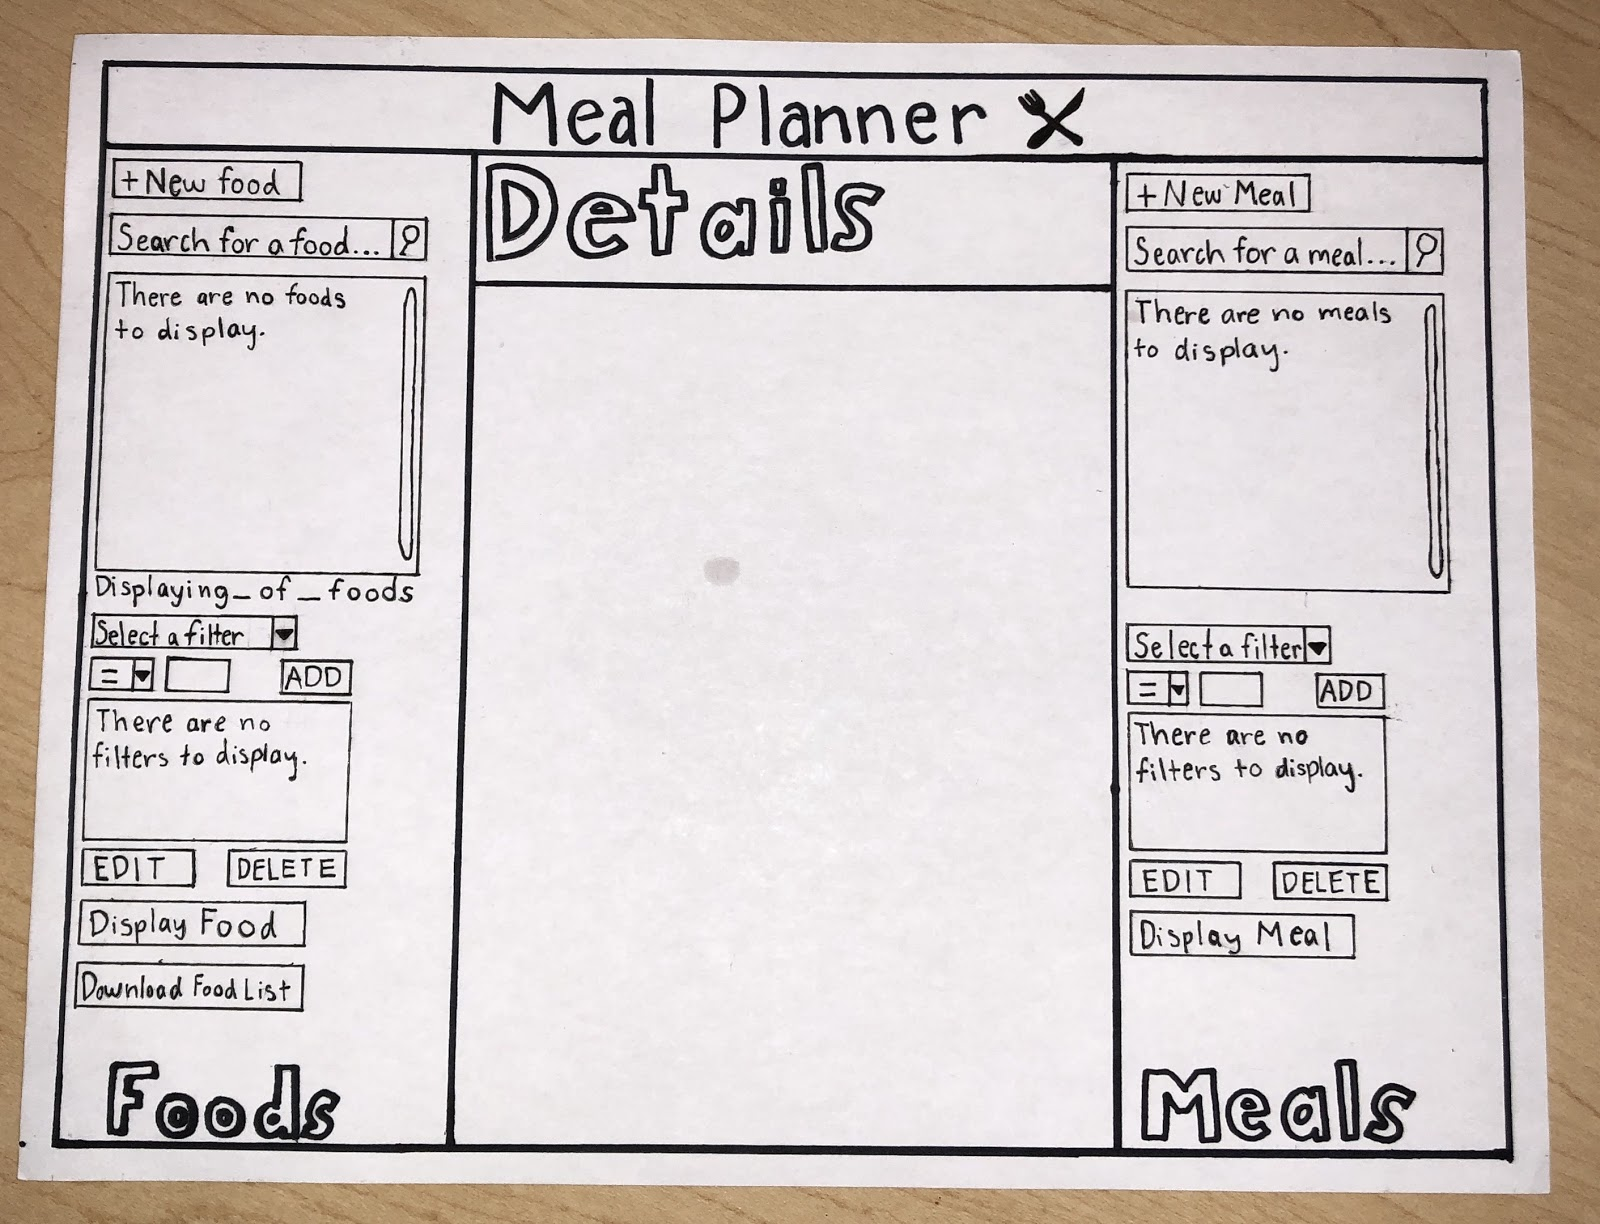 Meal Planner
+New food
Search for a food...
There are no foods
to display.
Displaying_of_foods
Select a filter
=
ADD
There are no
filters to display.
EDIT
DELETE
Display Food
Download Food List
Foods
Details
+New Meal
Search for a meal...
There are no meals
to display.
Select a filter
=
ADD
There are no
filters to display.
EDIT
DELETE
Display Meal
Meals